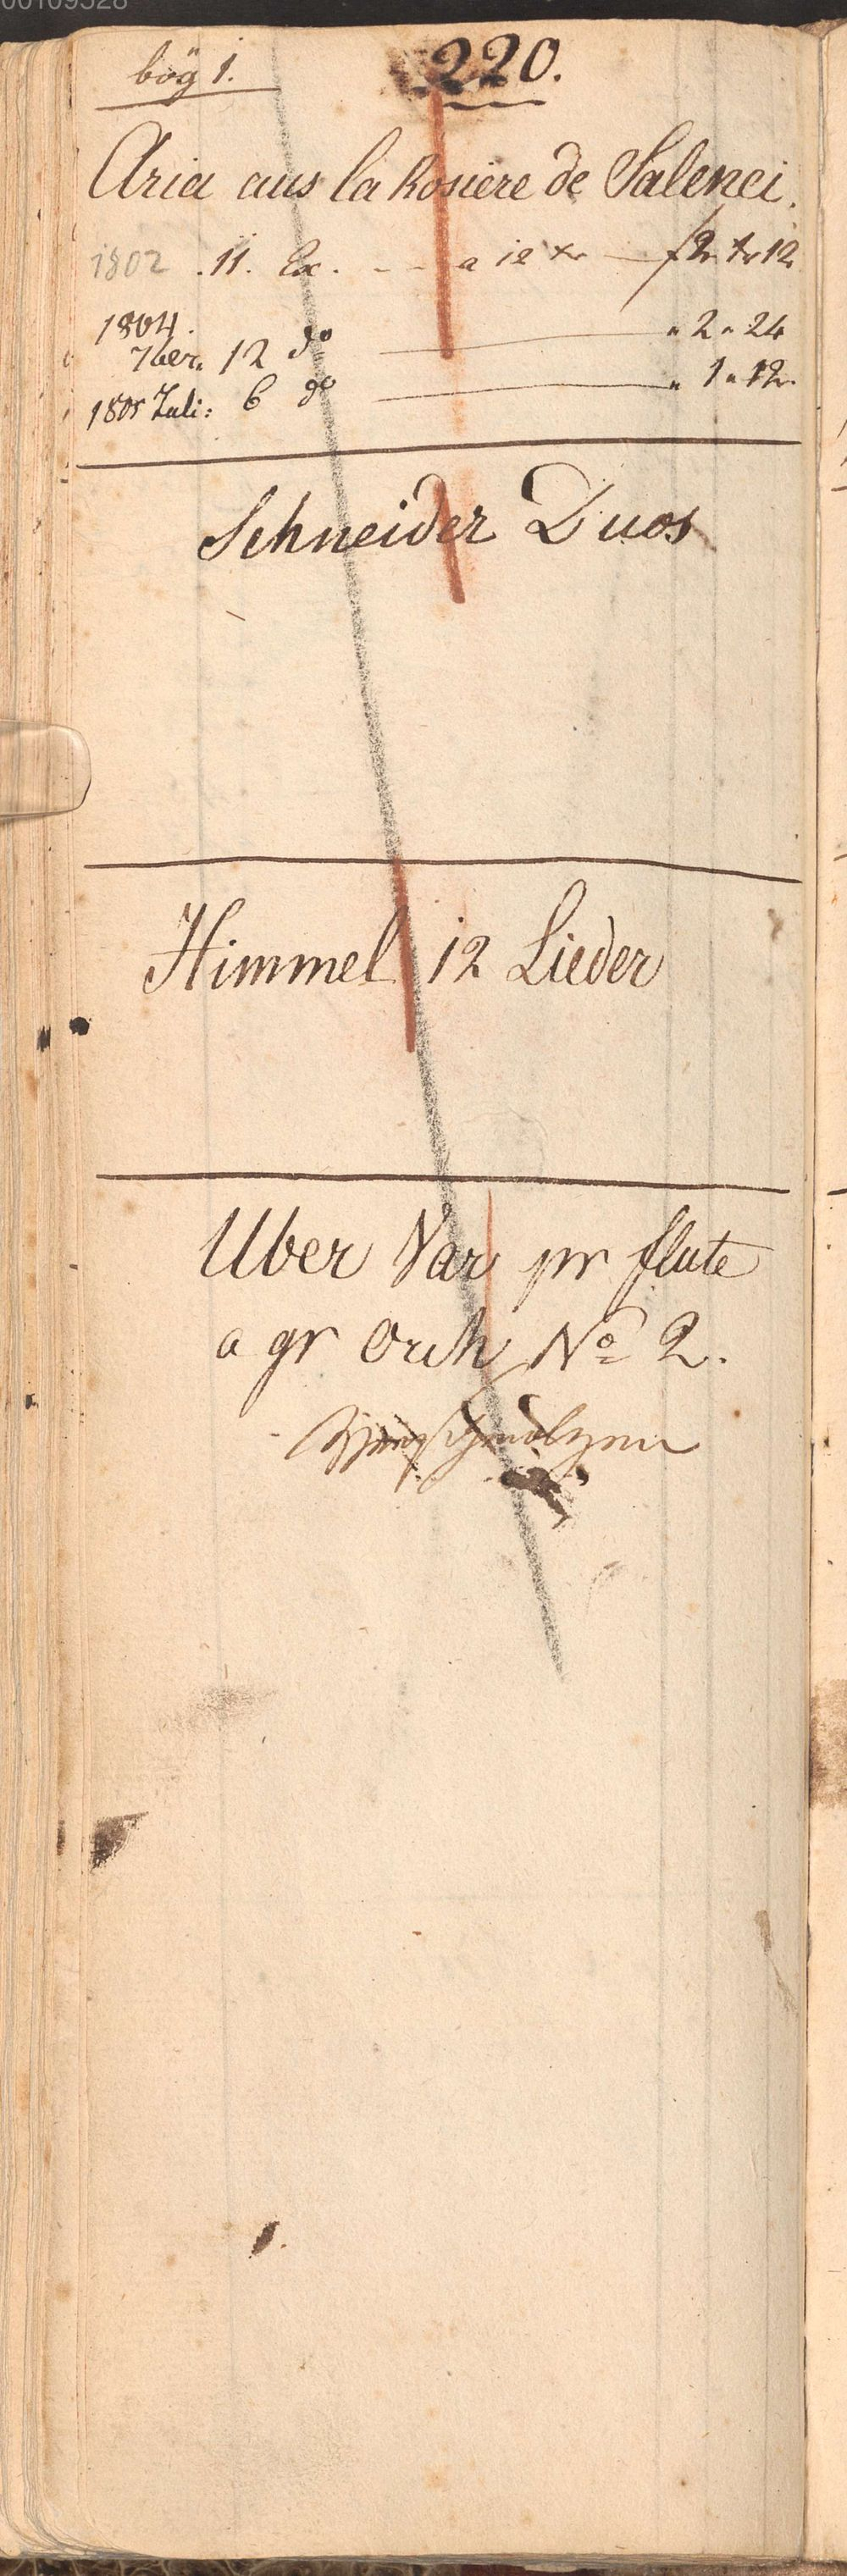 00109528
bög 1.
220.
Aria aus la Rosiere de Salenci.
1802 .11. Ex. - - - a 12 xr — f 2 xr 12
1804.
7ber. 12 do — " 2 " 24
1805 Juli: 6 do — " 1 " 12.
Schneider Duos
Himmel 12 Lieder
Uber Var pr flute
a gr Orch No 2.